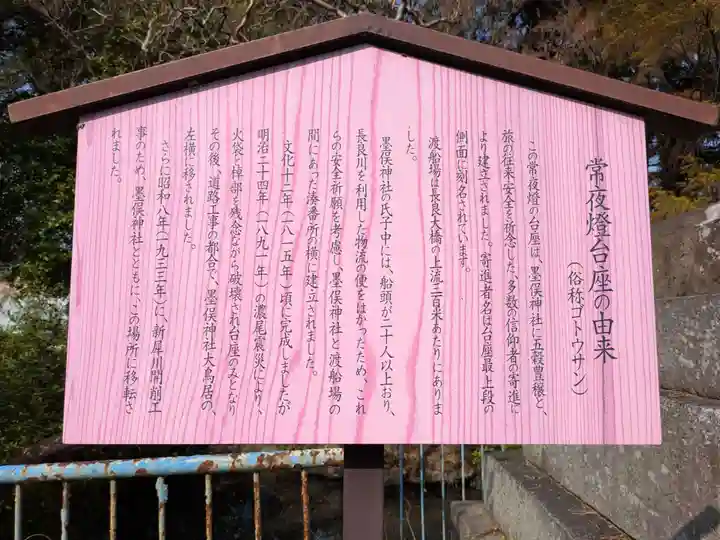 常夜燈台座の由来
（俗称ゴトウサン）
この常夜燈の台座は、墨俣神社に五穀豊穣と、
旅の往来安全を祈念した、多数の信仰者の寄進に
より建立されました。寄進者名は台座最上段の
側面に刻名されています。
渡船場は長良大橋の上流三百米あたりにありま
した。
墨俣神社の氏子中には、船頭が二十人以上おり、
長良川を利用した物流の便をはかったため、これ
らの安全祈願を考慮し、墨俣神社と渡船場の
間にあった湊番所の横に建立されました。
文化十二年（一八一五年）頃に完成しましたが
明治二十四年（一八九一年）の濃尾震災により、
火袋と棹部を残念ながら破壊され台座のみとなり
その後、道路工事の都合で、墨俣神社大鳥居の、
左横に移されました。
さらに昭和八年（一九三三年）に、新犀川開削工
事のため、墨俣神社とともに、この場所に移転さ
れました。